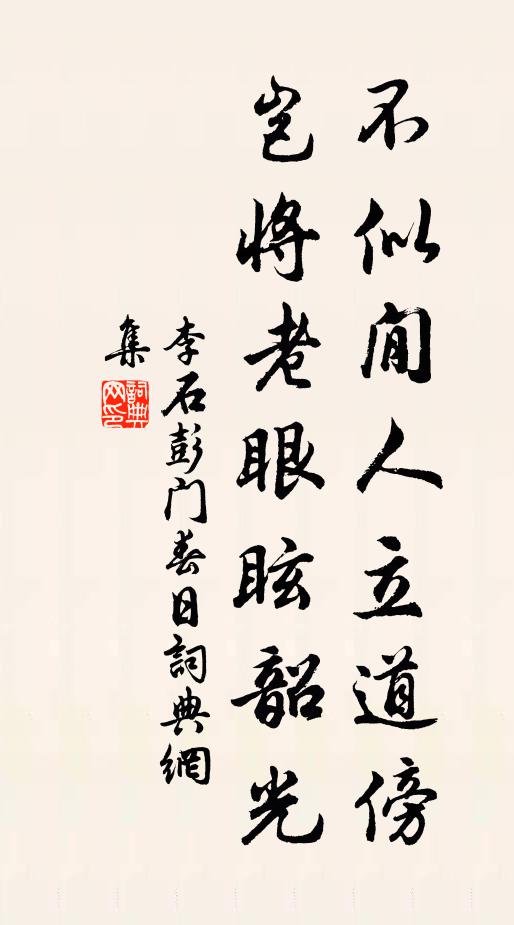 不似閒人立道傍
岂將老眼眩韶光
李石彭门春日詞典網
集
詞典
网印